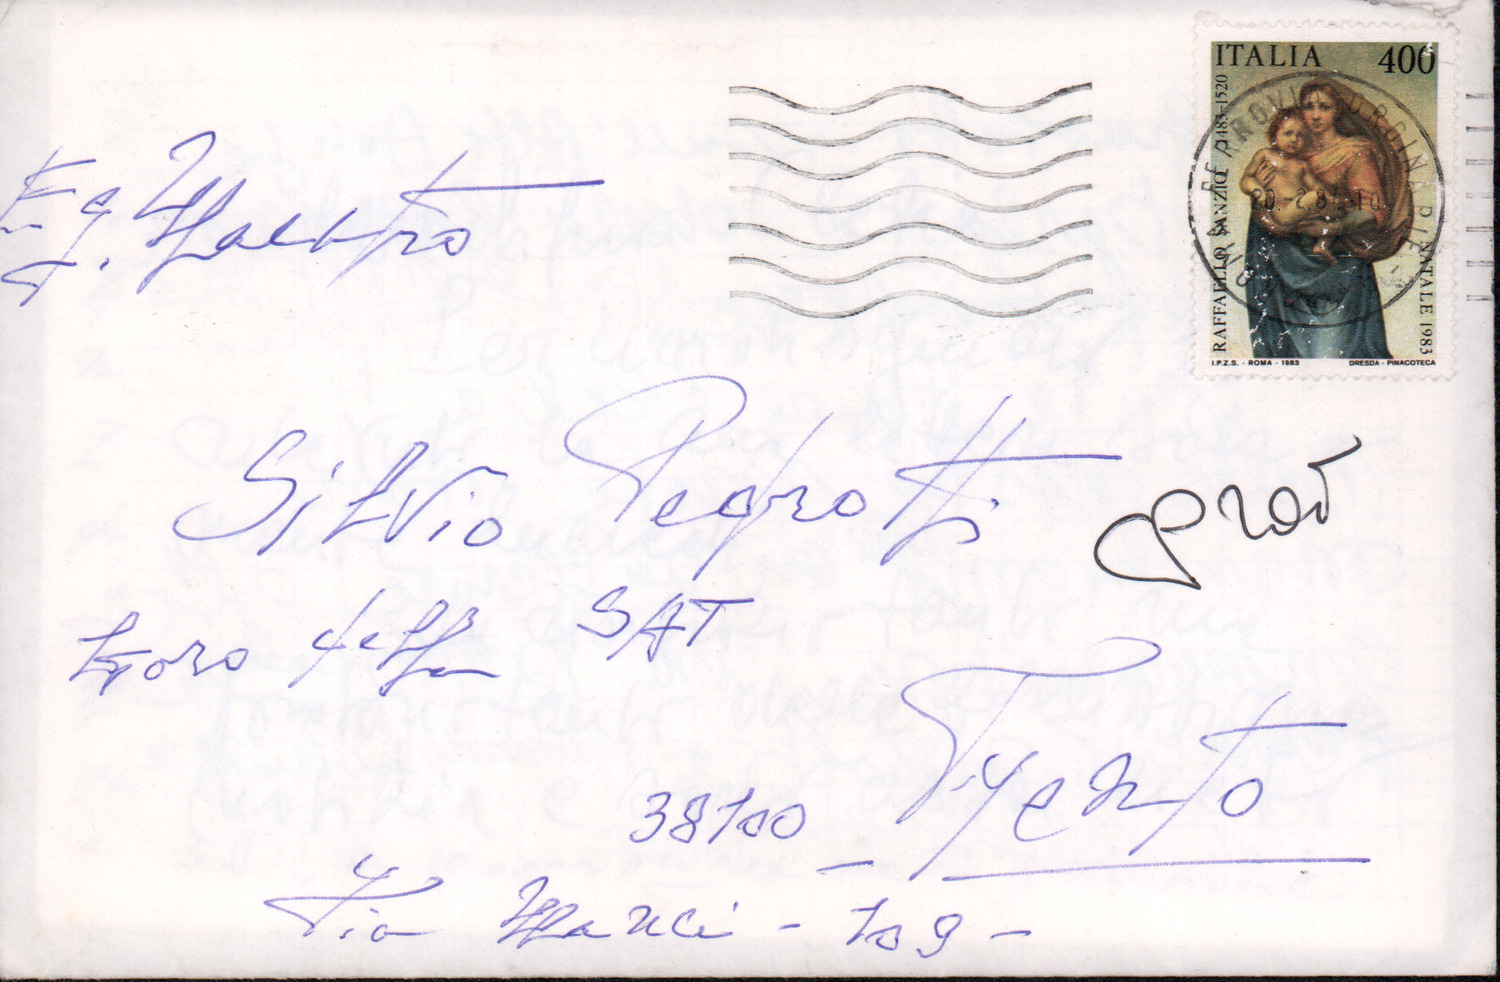 ITALIA 400
RAFFAELLO SANZIO 1483-1520
NATALE 1983
I.P.Z.S. - ROMA - 1983 DRESDA - PINACOTECA
Eg. Maestro
Silvio Pedrotti
Coro della SAT
38100 Trento
Via Manci - 109 -